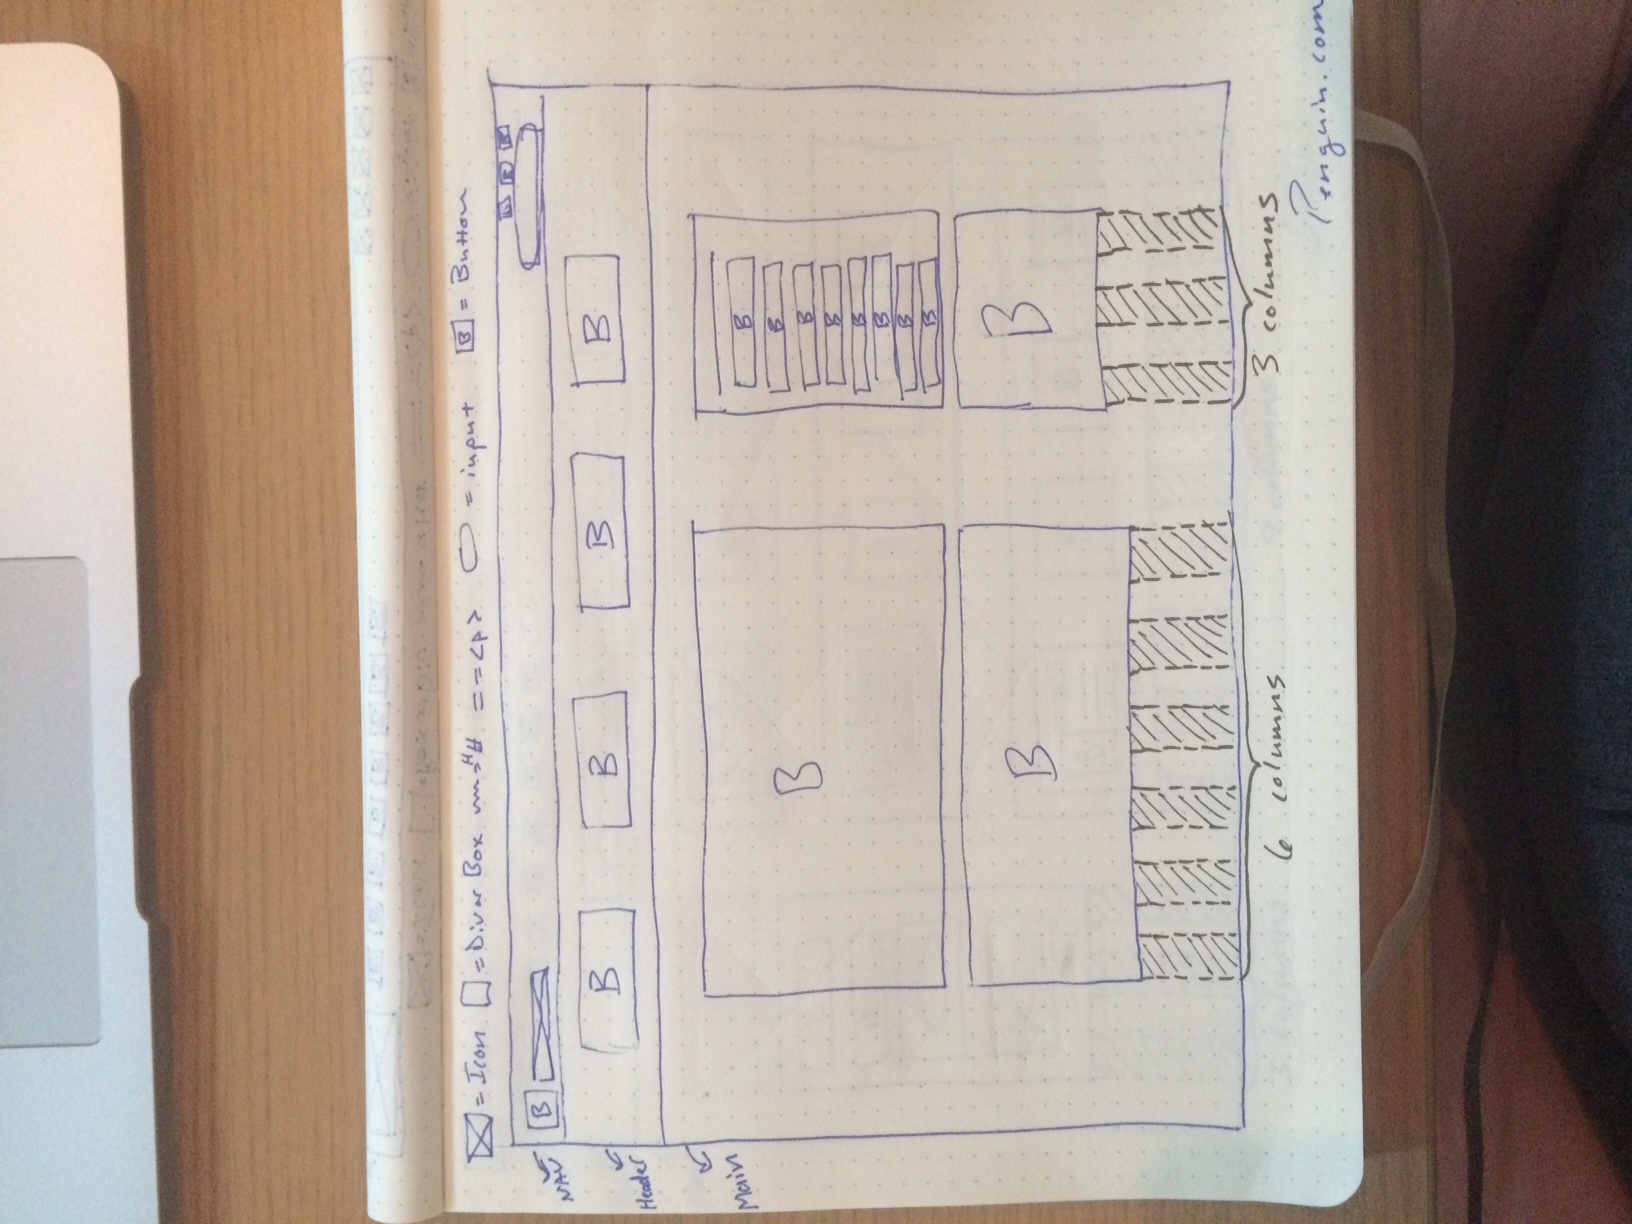 = Icon = Div or Box = H# = = <p> = input B = Button
NAV B
Header B B B B
Main
B
B
B
B
B
B
B
B
B
B B
6 columns 3 columns
Penguin.com